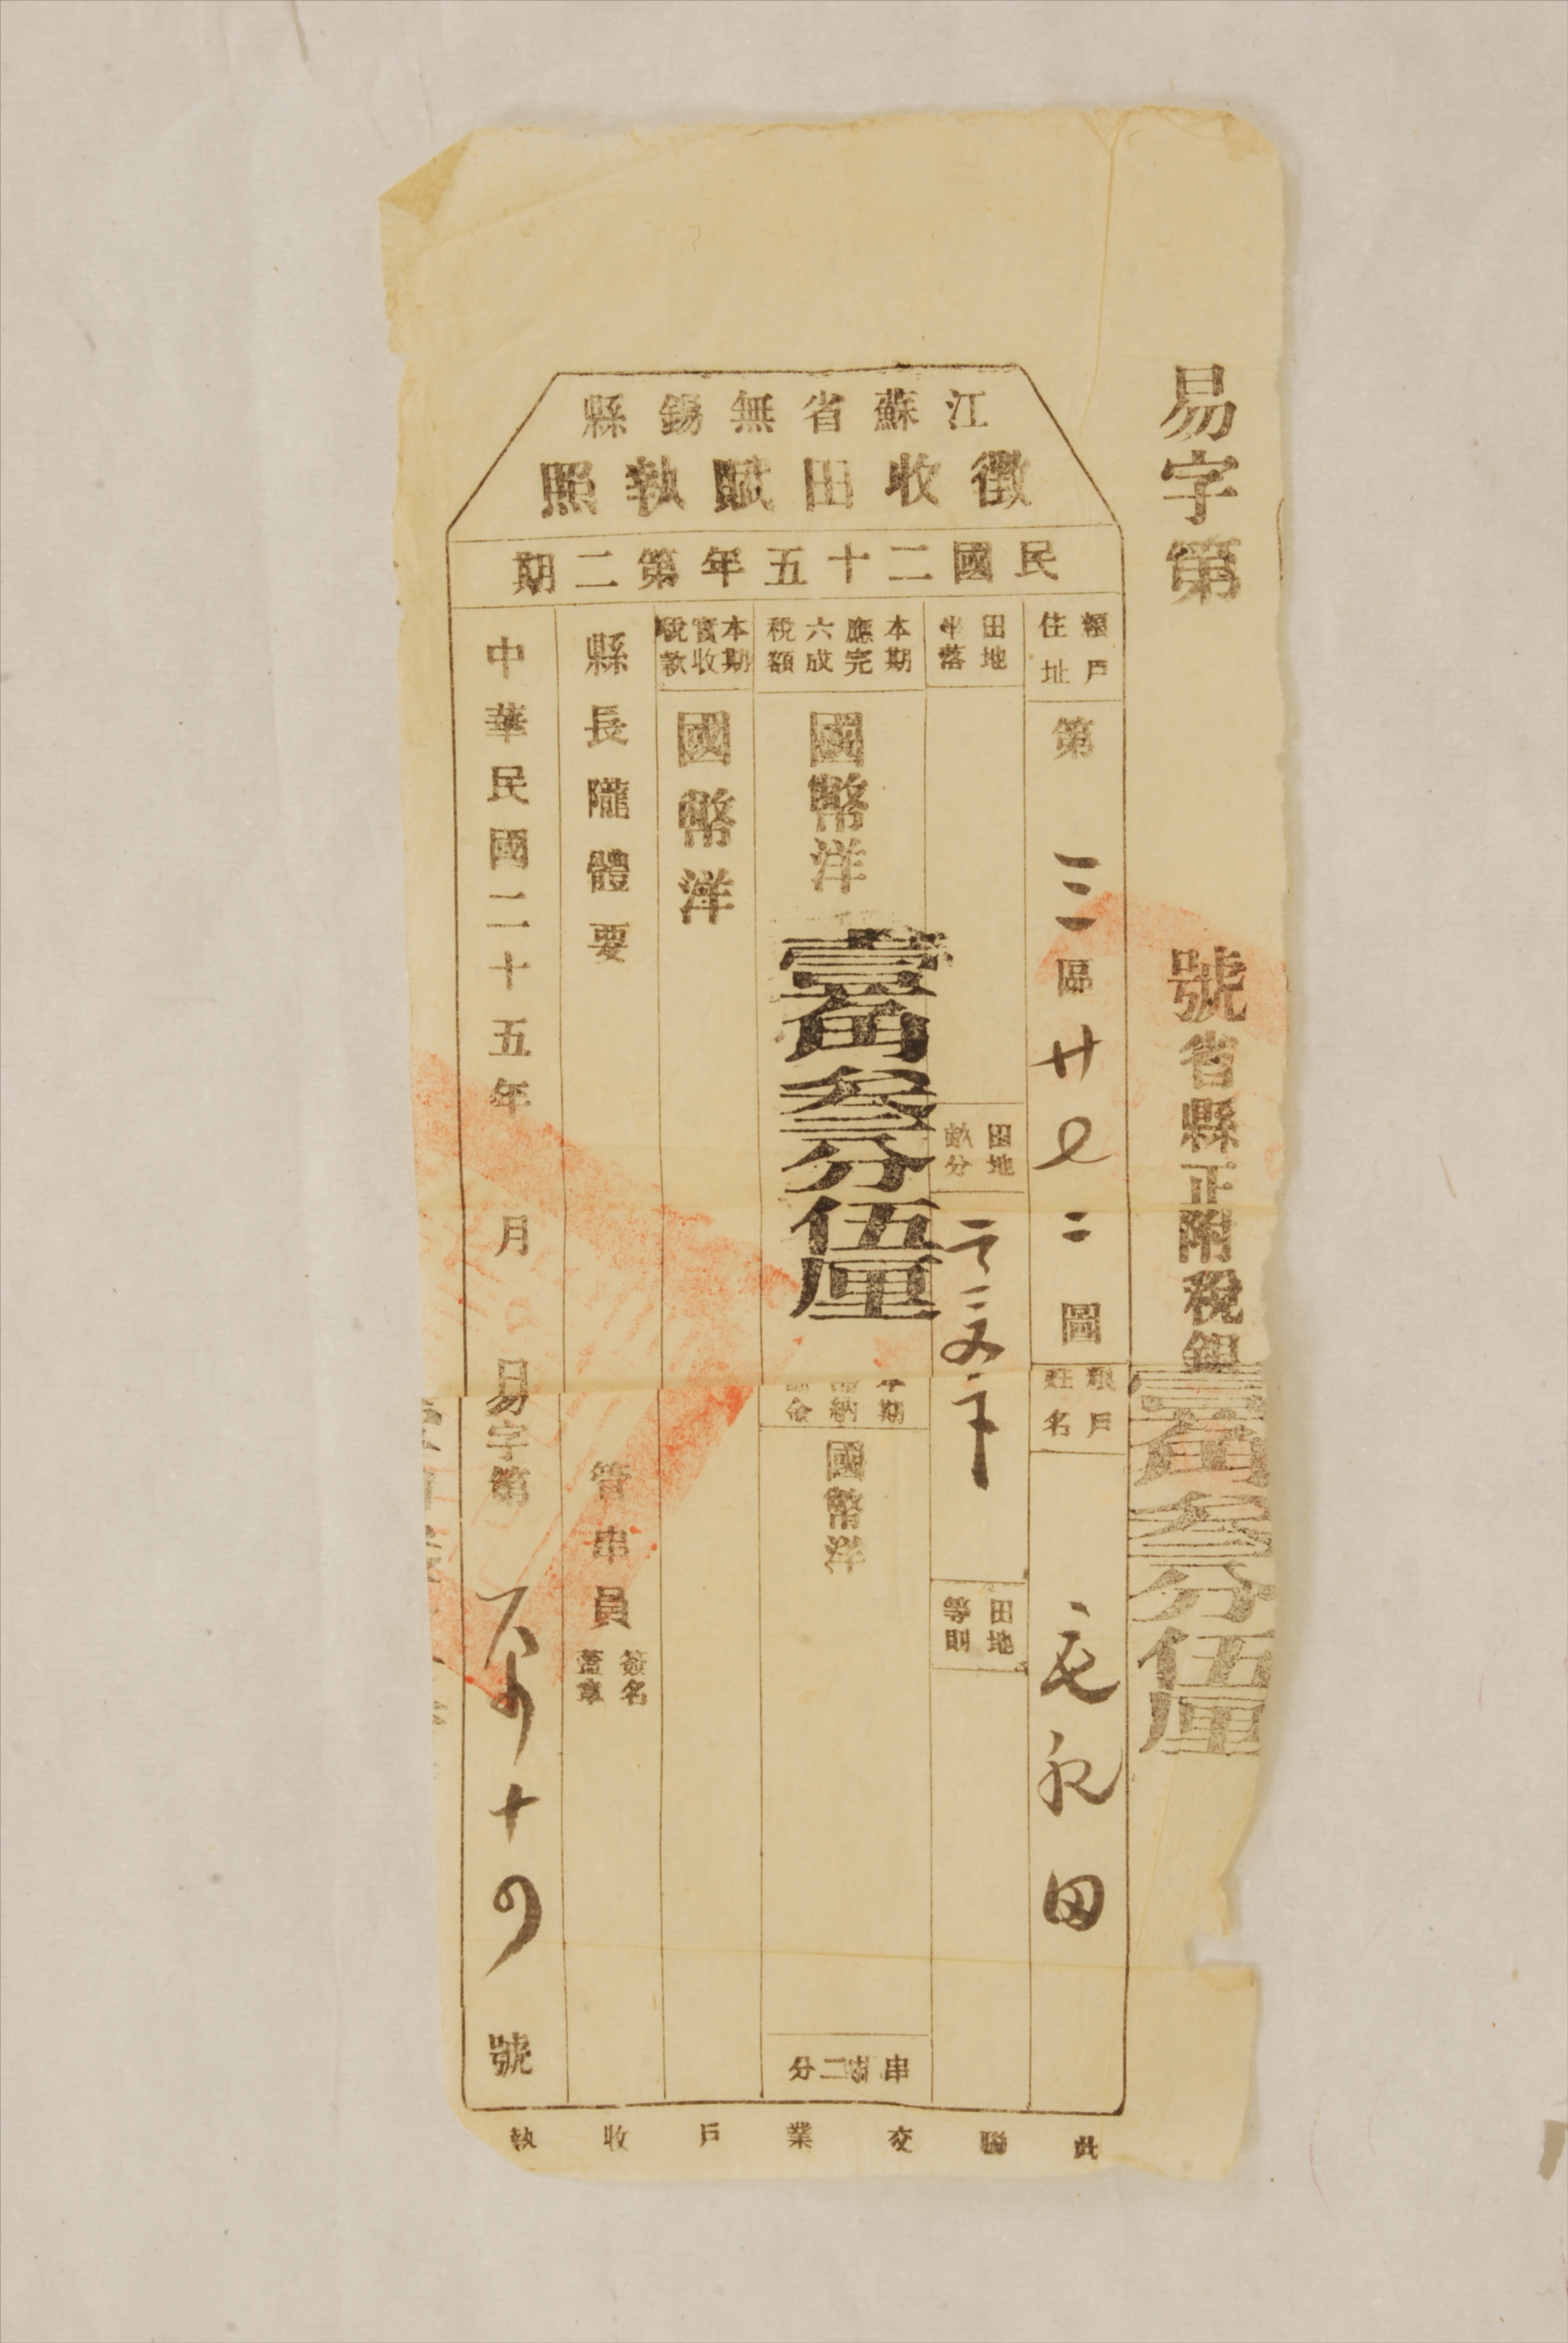 易字第 號省縣正附稅銀壹角叁分伍厘
江蘇省無錫縣
徵收田賦執照
民國二十五年第二期
糧戶住址
第三區廿 二圖
糧戶姓名
毛 田
田地坐落
田地畝分
田地等則
本期應完六成稅額
國幣洋壹角叁分伍厘
本期 納 金
國幣洋
串 二分
本期實收稅款
國幣洋
縣長隴體要
管串員
簽名蓋章
中華民國二十五年 月 日
易字第 十 號
此聯交業戶收執